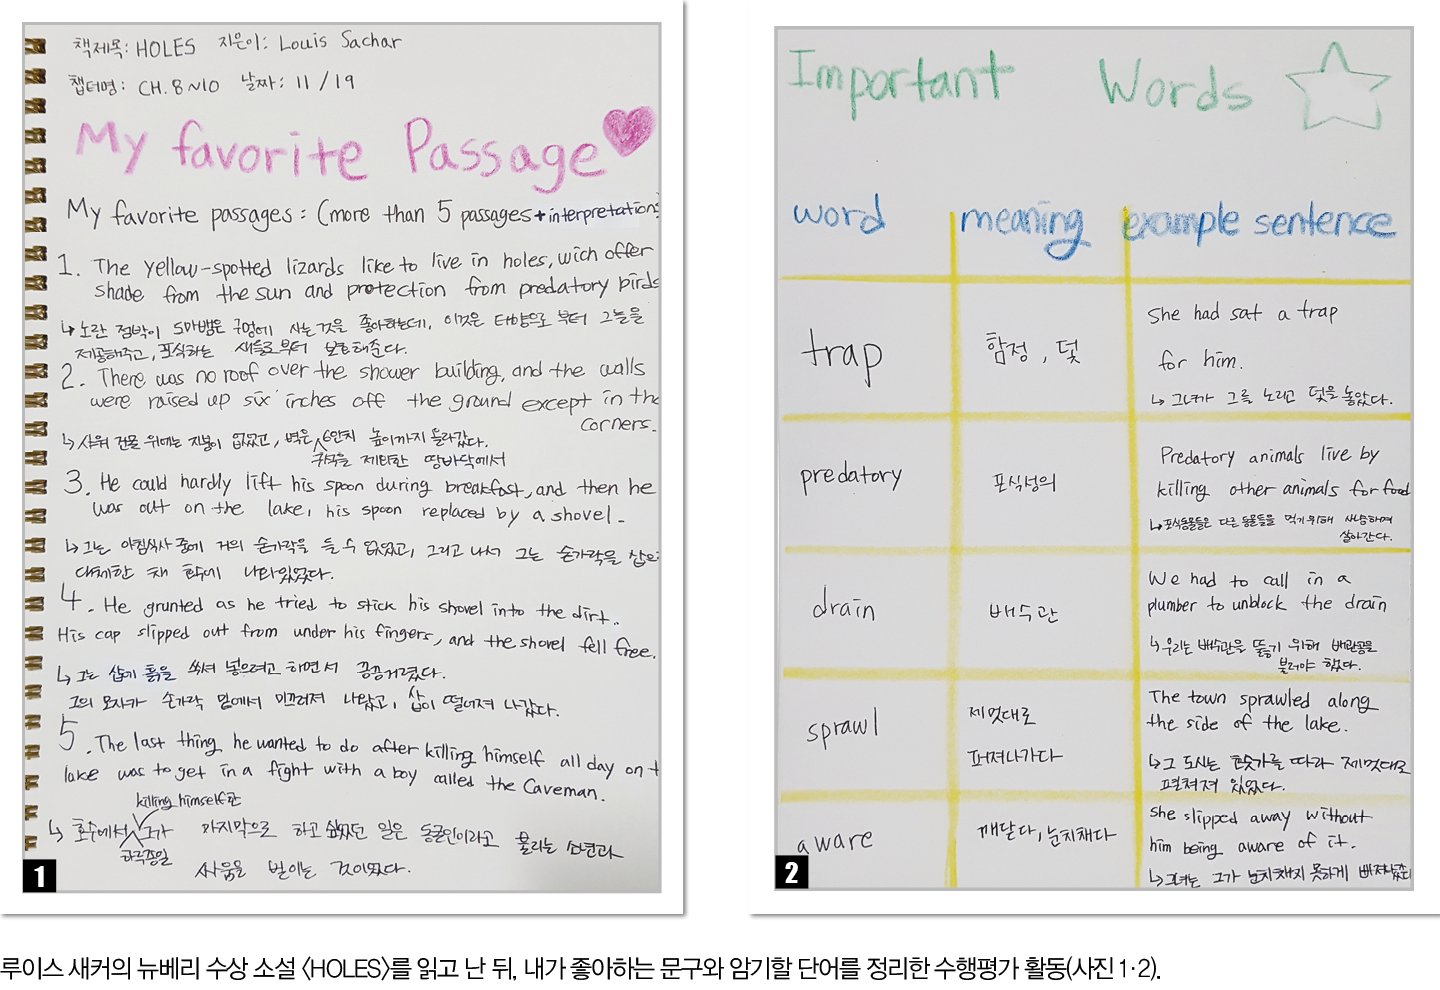 책제목: HOLES 지은이: Louis Sachar
챕터명: CH. 8~10 날짜: 11/19
My favorite Passage
My favorite passages: (more than 5 passages + interpretation
1. The yellow-spotted lizards like to live in holes, wich offer
shade from the sun and protection from predatory birds
↳ 노란 점박이 도마뱀은 구멍에 사는 것을 좋아하는데, 이것은 태양으로부터 그늘을
제공해주고, 포식하는 새들로부터 보호해준다.
2. There was no roof over the shower building, and the walls
were raised up six inches off the ground except in the
corners.
↳ 샤워 건물 위에는 지붕이 없었고, 벽은 6인치 높이까지 올라갔다.
귀퉁을 제외한 땅바닥에서
3. He could hardly lift his spoon during breakfast, and then he
was out on the lake, his spoon replaced by a shovel.
↳ 그는 아침식사 중에 거의 숟가락을 들 수 없었고, 그리고 나서 그는 숟가락을 삽으
대체한 채 호수에 나타있었다.
4. He grunted as he tried to stick his shovel into the dirt..
His cap slipped out from under his fingers, and the shovel fell free.
↳ 그는 삽에 흙을 쑤셔 넣으려고 하면서 끙끙거렸다.
그의 모자가 손가락 밑에서 미끄러져 나왔고, 삽이 떨어져 나갔다.
5. The last thing he wanted to do after killing himself all day on t
lake was to get in a fight with a boy called the Caveman.
killing himself한
↳ 호수에서 그가 마지막으로 하고 싶었던 일은 동굴인이라고 불리는 소년과
하루종일
싸움을 벌이는 것이었다.
1
Important Words
word meaning example sentence
trap 함정, 덫
She had sat a trap
for him.
↳ 그녀가 그를 노리고 덫을 놓았다.
predatory 포식성의
Predatory animals live by
killing other animals for food
↳ 포식동물들은 다른 동물들을 먹기 위해 사냥하며
살아간다.
drain 배수관
We had to call in a
plumber to unblock the drain
↳ 우리는 배수관을 뚫기 위해 배관공을
불러야 했다.
sprawl 제멋대로
퍼져나가다
The town sprawled along
the side of the lake.
↳ 그 도시는 호숫가를 따라 제멋대로
펼쳐져 있었다.
aware 깨닫다, 눈치채다
She slipped away without
him being aware of it.
↳ 그녀는 그가 눈치채지 못하게 빠져나갔다
2
루이스 새커의 뉴베리 수상 소설 <HOLES>를 읽고 난 뒤, 내가 좋아하는 문구와 암기할 단어를 정리한 수행평가 활동(사진 1·2).